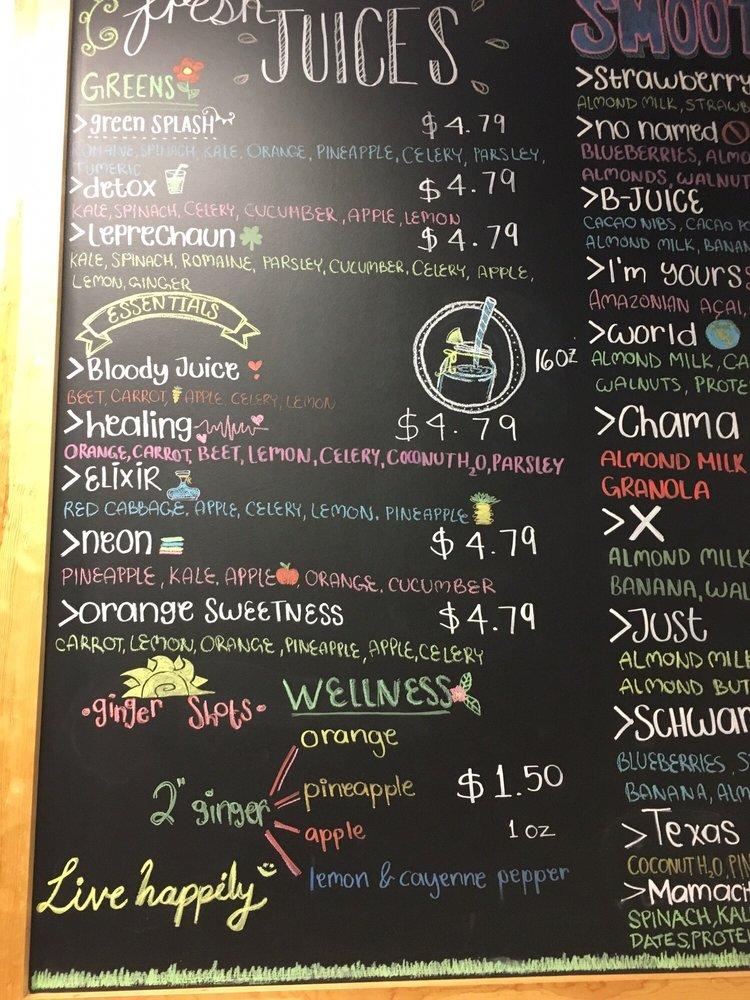 fresh
JUICES
GREENS
>green SPLASH $4.79
ROMAINE, SPINACH, KALE, ORANGE, PINEAPPLE, CELERY, PARSLEY,
TUMERIC
>detox $4.79
KALE, SPINACH, CELERY, CUCUMBER, APPLE, LEMON
>Leprechaun $4.79
KALE, SPINACH, ROMAINE, PARSLEY, CUCUMBER, CELERY, APPLE,
LEMON, GINGER
ESSENTIALS
16oz
>Bloody Juice
BEET, CARROT, APPLE, CELERY, LEMON
>healing $4.79
ORANGE, CARROT, BEET, LEMON, CELERY, COCONUT H2O, PARSLEY
>ELIXIR
RED CABBAGE, APPLE, CELERY, LEMON, PINEAPPLE
>neon $4.79
PINEAPPLE, KALE, APPLE, ORANGE, CUCUMBER
>orange SWEETNESS $4.79
CARROT, LEMON, ORANGE, PINEAPPLE, APPLE, CELERY
•ginger Shots•
WELLNESS
orange
2" ginger pineapple $1.50
apple 1 oz
lemon & cayenne pepper
Live happily
SMOOT
>Strawberry
ALMOND MILK, STRAWB
>no named
BLUEBERRIES, ALMO
ALMONDS, WALNUT
>B-JUICE
CACAO NIBS, CACAO PO
ALMOND MILK, BANAN
>I'm yours
AMAZONIAN AÇAI,
>world
ALMOND MILK, CA
WALNUTS, PROTE
>Chama
ALMOND MILK
GRANOLA
>X
ALMOND MILK
BANANA, WAL
>JUST
ALMOND MILK
ALMOND BUT
>SCHWAR
BLUEBERRIES, S
BANANA, ALM
>Texas
COCONUT H2O, PIN
>Mamach
SPINACH, KAL
DATES, PROTEI